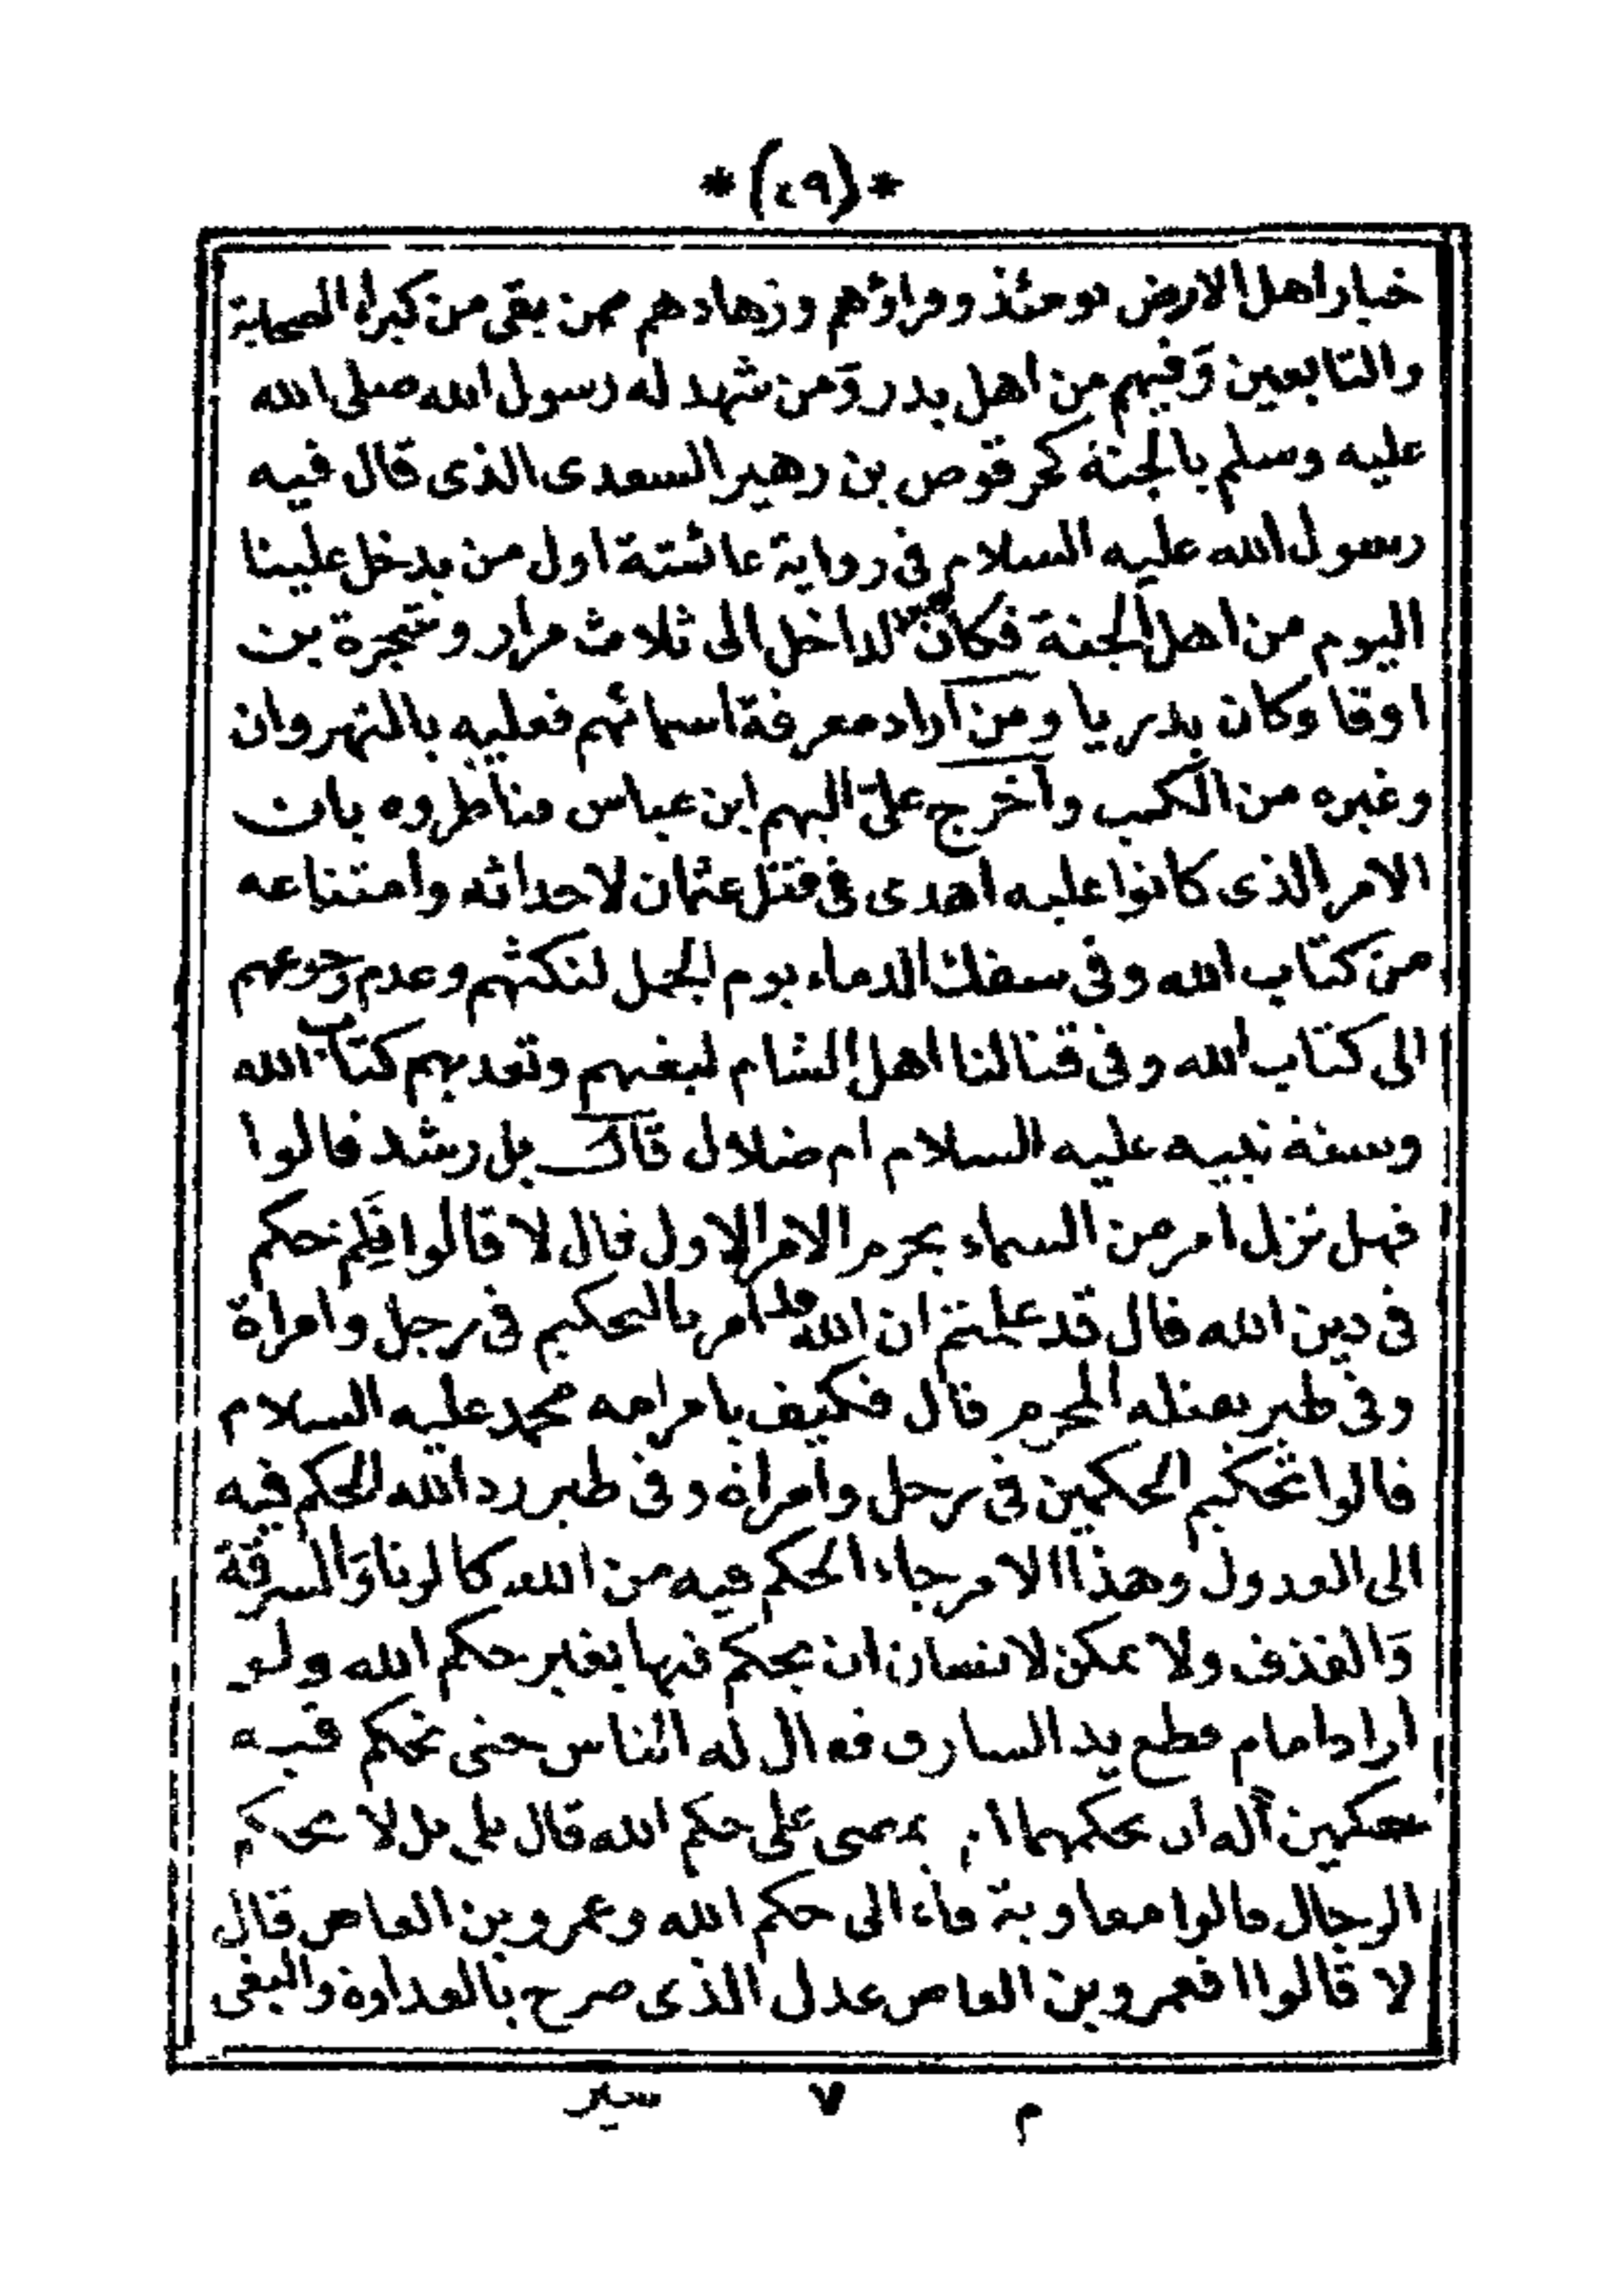 *(٤٩)*
خيار اهل الارض يومئذ وقراؤهم وزهادهم ممن بقى من كبراء الصحابة
والتابعين وَفيهم من اهل بدر وَمن شهد له رسول الله صلى الله
عليه وسلم بالجنة كحرقوص بن زهير السعدى الذى قال فيه
رسول الله عليه السلام فى رواية عائشة اول من يدخل علينا
اليوم من اهل الجنة فكان الداخل الى ثلاث مرار وشجرة بن
اوفا وكان بدريا ومن اراد معرفة اسمائهم فعليه بالنهروان
وغيره من الكتب وآخرج علىّ اليهم ابن عباس فناظروه بان
الامر الذى كانوا عليه اهدى فى قتل عثمان لاحداثه وامتناعه
من كتاب الله وفى سفك الدماء يوم الجمل لنكثهم وعدم رجوعهم
الى كتاب الله وفى قتالنا اهل الشام لبغيهم وتعديهم كتاب الله
وسنة نبيه عليه السلام ام ضلال قال بل رشد قالوا
فهل نزل امر من السماء يحرم الامر الاول قال لا قالوا فَلِم نحكم
فى دين الله قال قد علمتم ان الله قد امر بالتحكيم فى رجل وامراة
وفى طير يقتله المحرم قال فكيف بامرامه محمد عليه السلام
قالوا تحكيم الحكمين فى رجل وامراة وفى طير رد الله الحكم فيه
الى العدول وهذا الامر جاء الحكم فيه من الله كالزنا وَالسرقة
وَالقذف ولا يمكن لانسان ان يحكم فيها بغير حكم الله ولو
اراد امام قطع يد السارق فقال له الناس حتى نحكم فيه
حكمين آله ان يحكمهما ام يمضى على حكم الله قال بلى بل لا يحكم
الرجال قالوا معاوية فاء الى حكم الله وعمرو بن العاص قال
لا قالوا افعمرو بن العاص عدل الذى صرح بالعداوة والبغى
م ٧ سير